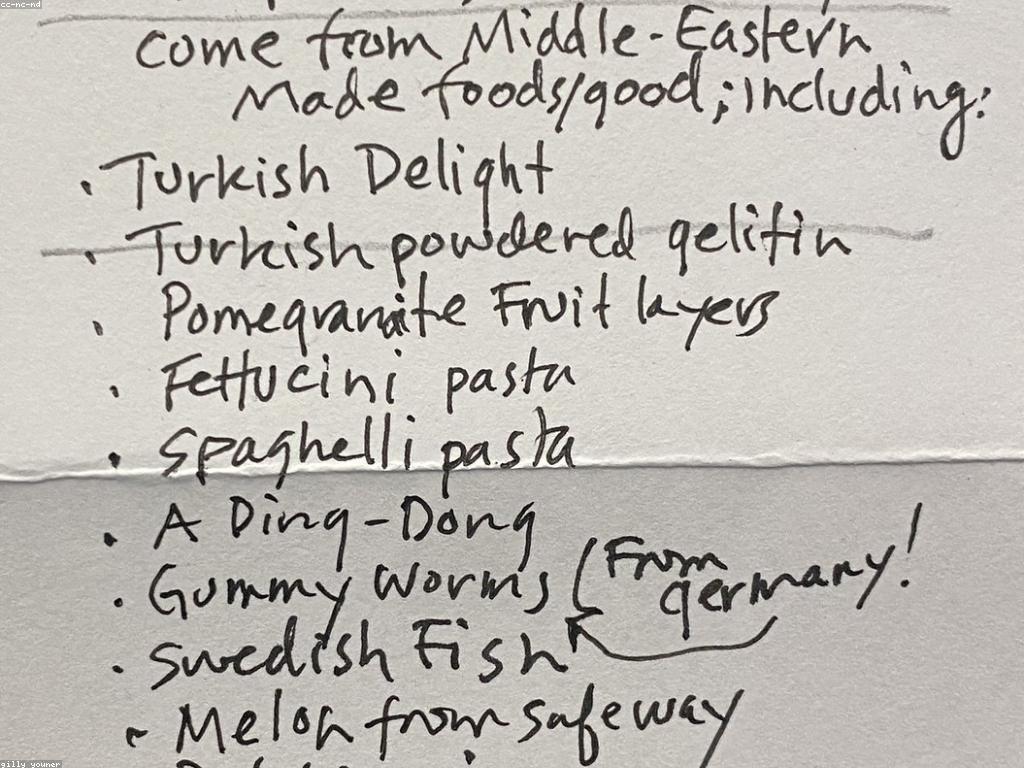 cc-nc-nd
come from Middle-Eastern
Made foods/good; including:
. Turkish Delight
. Turkish powdered gelitin
. Pomegranite Fruit layers
. Fettucini pasta
. Spaghelli pasta
. A Ding-Dong
. Gummy Worms (From germany!
. Swedish Fish
- Melon from safeway
gilly youner